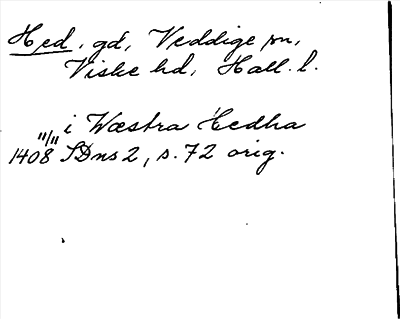 Hed, gd, Veddige sn,
Viske hd, Hall. l.
i Wæstra Hedha
11/11 1408 SDns 2, s. 72 orig.